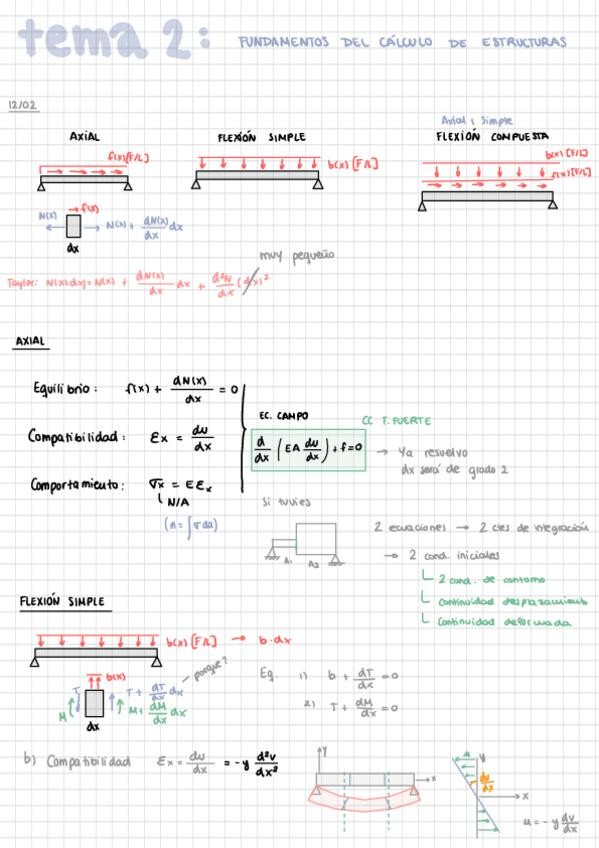 tema 2: FUNDAMENTOS DEL CÁLCULO DE ESTRUCTURAS
12/02
AXIAL
f(x)[F/L]
FLEXIÓN SIMPLE
b(x) [F/L]
Axial y Simple
FLEXIÓN COMPUESTA
b(x) [F/L]
f(x)[F/L]
f(x)
N(x)
N(x) + dN(x)/dx dx
dx
muy pequeño
Taylor: N(x+dx)= N(x) + dN(x)/dx dx + d²N/dx (dx)²
AXIAL
Equilibrio: f(x) + dN(x)/dx = 0
Compatibilidad: εx = du/dx
Comportamiento: σx = E εx
N/A
(n = ∫σda)
EC. CAMPO
d/dx (EA du/dx) + f = 0
CC T. FUERTE
→ Ya resuelvo
dx será de grado 2
Si tuvies
A1 A2
2 ecuaciones → 2 ctes de integración
→ 2 cond. iniciales
2 cond. de contorno
continuidad desplazamiento
continuidad deformada
FLEXIÓN SIMPLE
b(x) [F/L] → b·dx
b(x)
porque?
T
T + dT/dx dx
M
M + dM/dx dx
dx
Eq. 1) b + dT/dx = 0
2) T + dM/dx = 0
b) Compatibilidad εx = du/dx = -y d²v/dx²
y
x
u
y
dv/dx
x
u = -y dv/dx